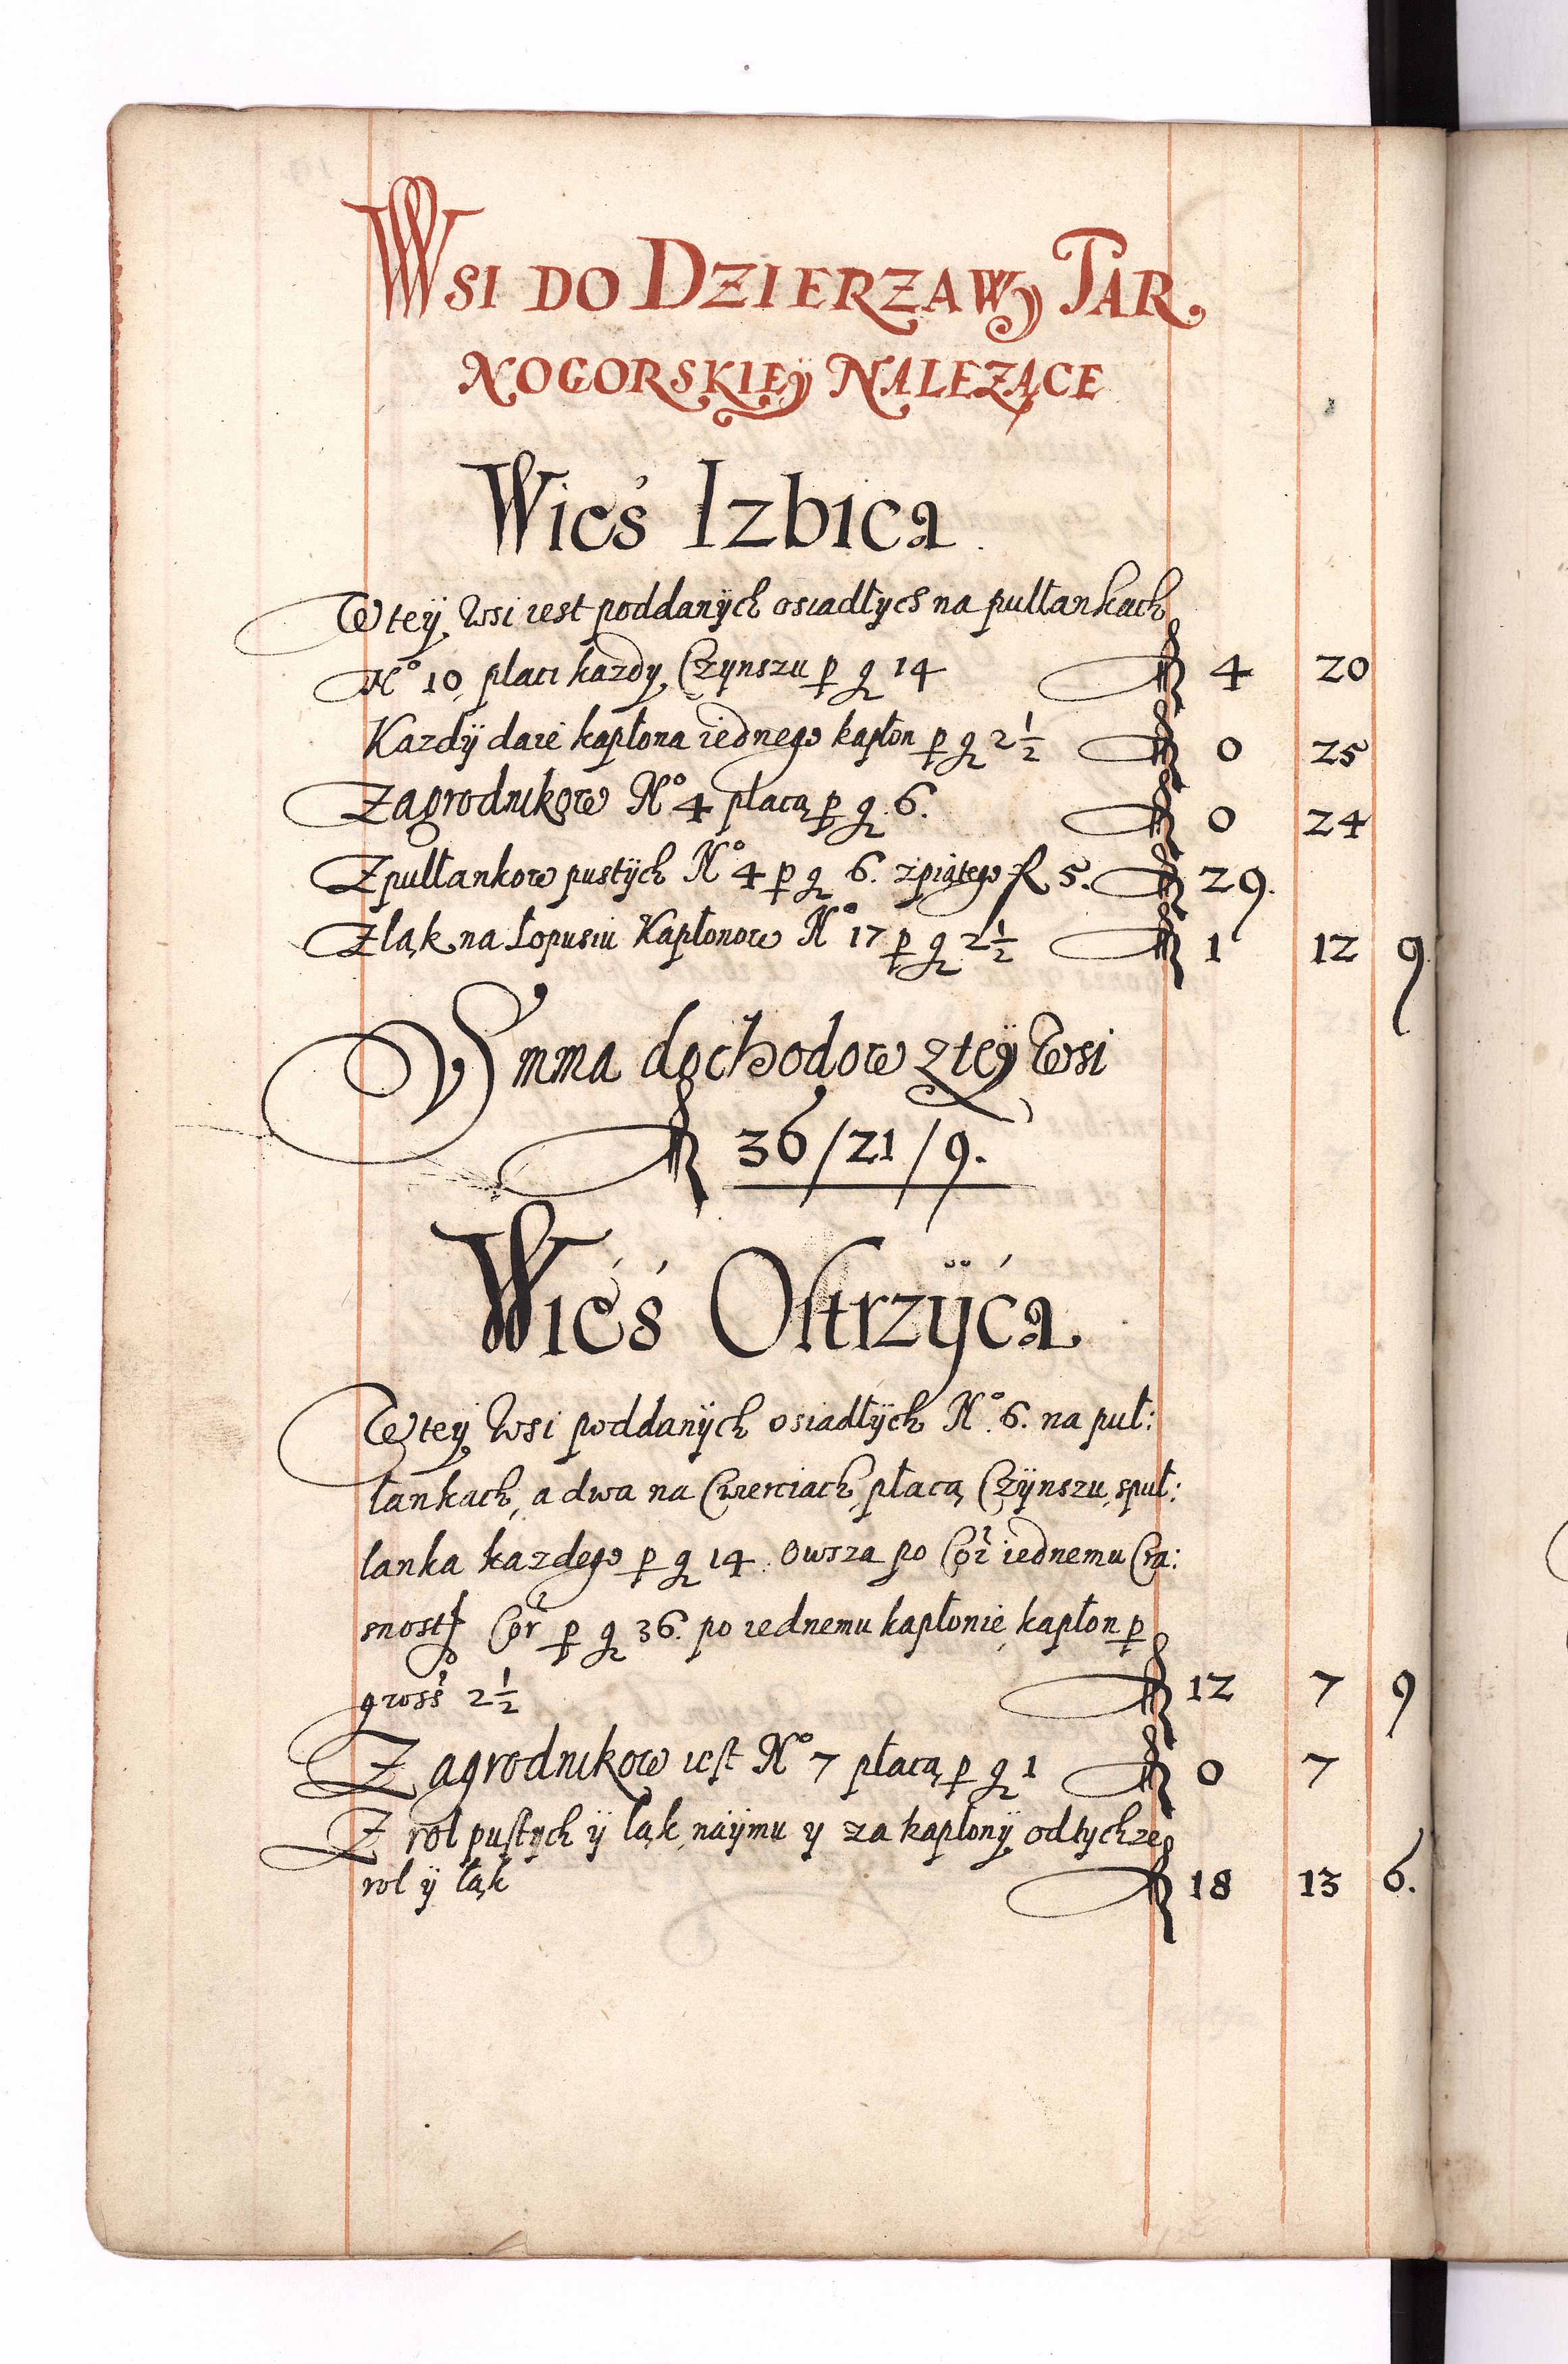 WSI DO DZIERZAWy TAR
NOGORSKIEÿ NALEZĄCE
Wieś Izbica
W teÿ Wsi iest poddanÿch osiadłych na pułłankach
No 10 płaci kazdy Czÿnszu p gr 14 fl 4 20
Kazdÿ daie kapłona iednego kapłon p gr 2 1/2 fl 0 25
Zagrodnikow No 4 płacą p gr 6. fl 0 24
Z pułłankow pustÿch No 4 p gr 6. z piątego fl 5. fl 29.
Z łąk na Łopusiu Kapłonow No 17 p gr 2 1/2 fl 1 12 9
Summa dochodow z teÿ Wsi
fl 36/21/9.
Wieś Ostrzÿca
W teÿ Wsi poddanÿch osiadłÿch No 6. na puł:
łankach, a dwa na Cwerciach, płacą Czÿnszu, s puł:
łanka kazdego p gr 14. Owsza po Cor iednemu Cra:
snost Cor p gr 36. po iednemu kapłonie, kapłon p
gross 2 1/2 fl 12 7 9
Zagrodnikow iest No 7 płacą p gr 1 fl 0 7
Z rol pustych ÿ łąk, naÿmu y za kapłonÿ od tychze
rol ÿ łąk fl 18 13 6.